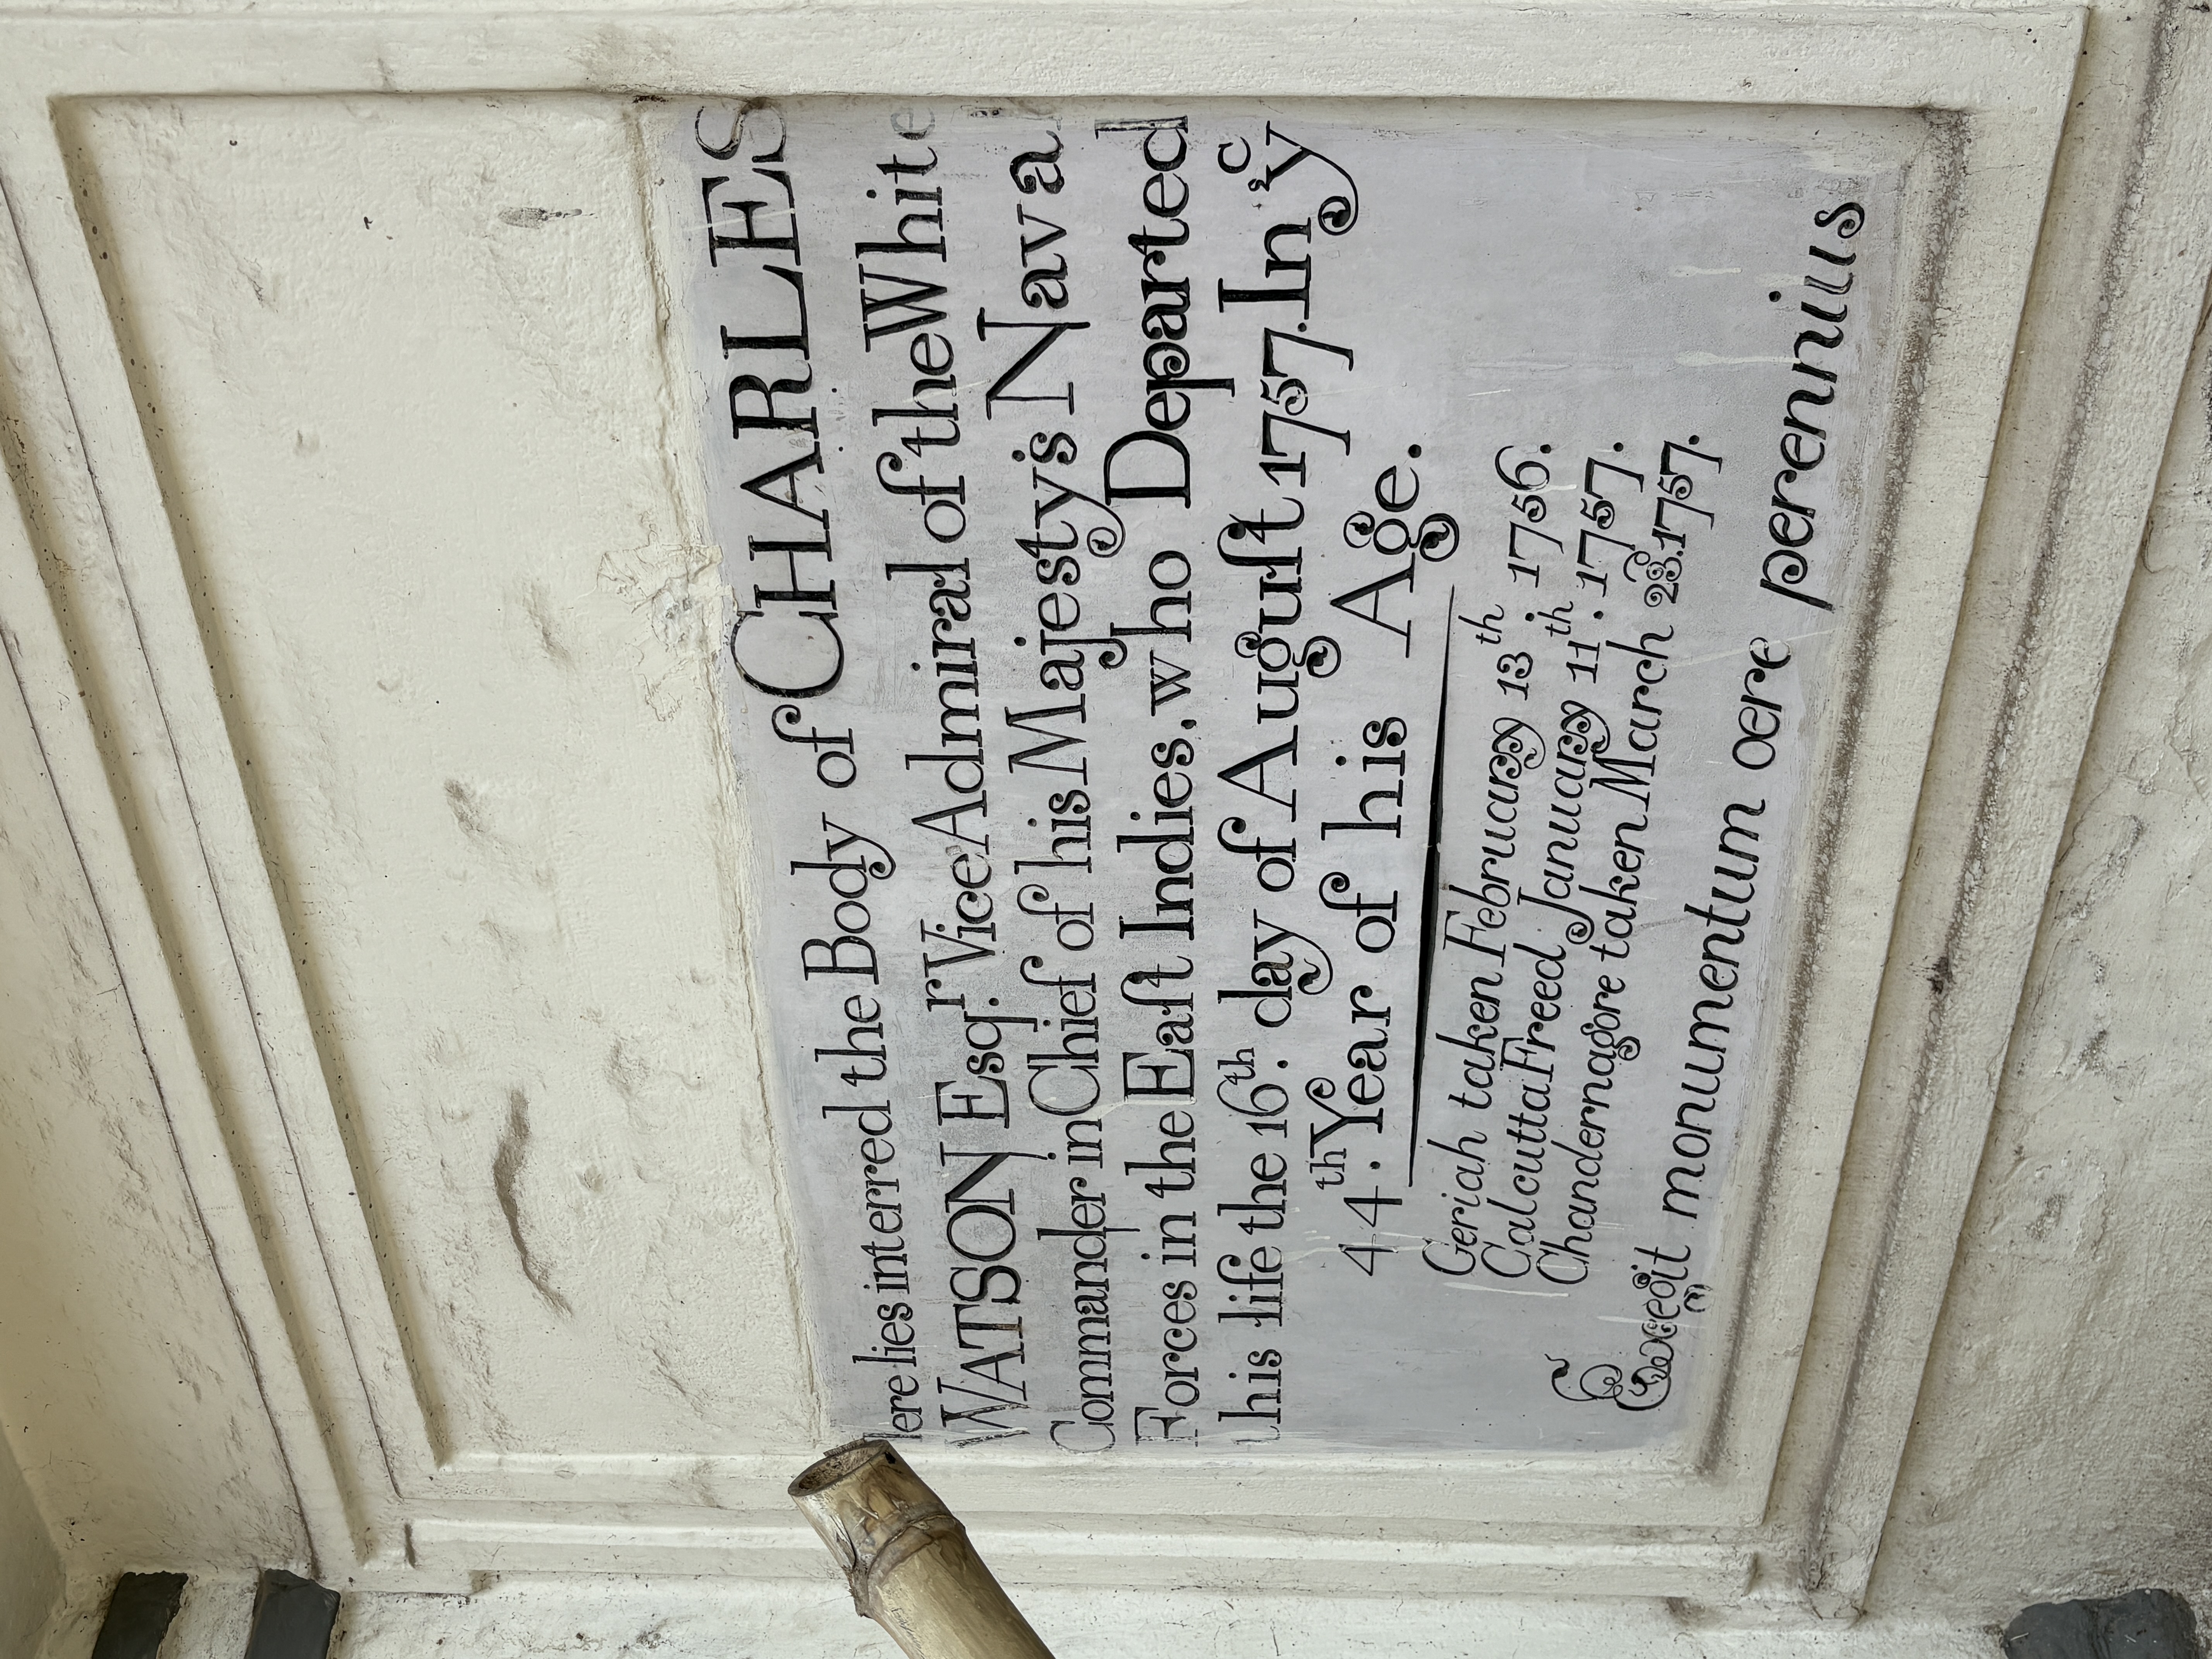 Here lies interred the Body of CHARLES
WATSON Esq.r Vice Admiral of the White
Commander in Chief of his Majesty's Naval
Forces in the Eaſt Indies. who Departed
this life the 16th. day of Auguſt 1757. In ye
44th. Year of his Age.
Geriah taken February 13th 1756.
Caloutta Freed January 11th. 1757.
Chandernagore taken March 23d. 1757.
Exegit monumentum œre perennius